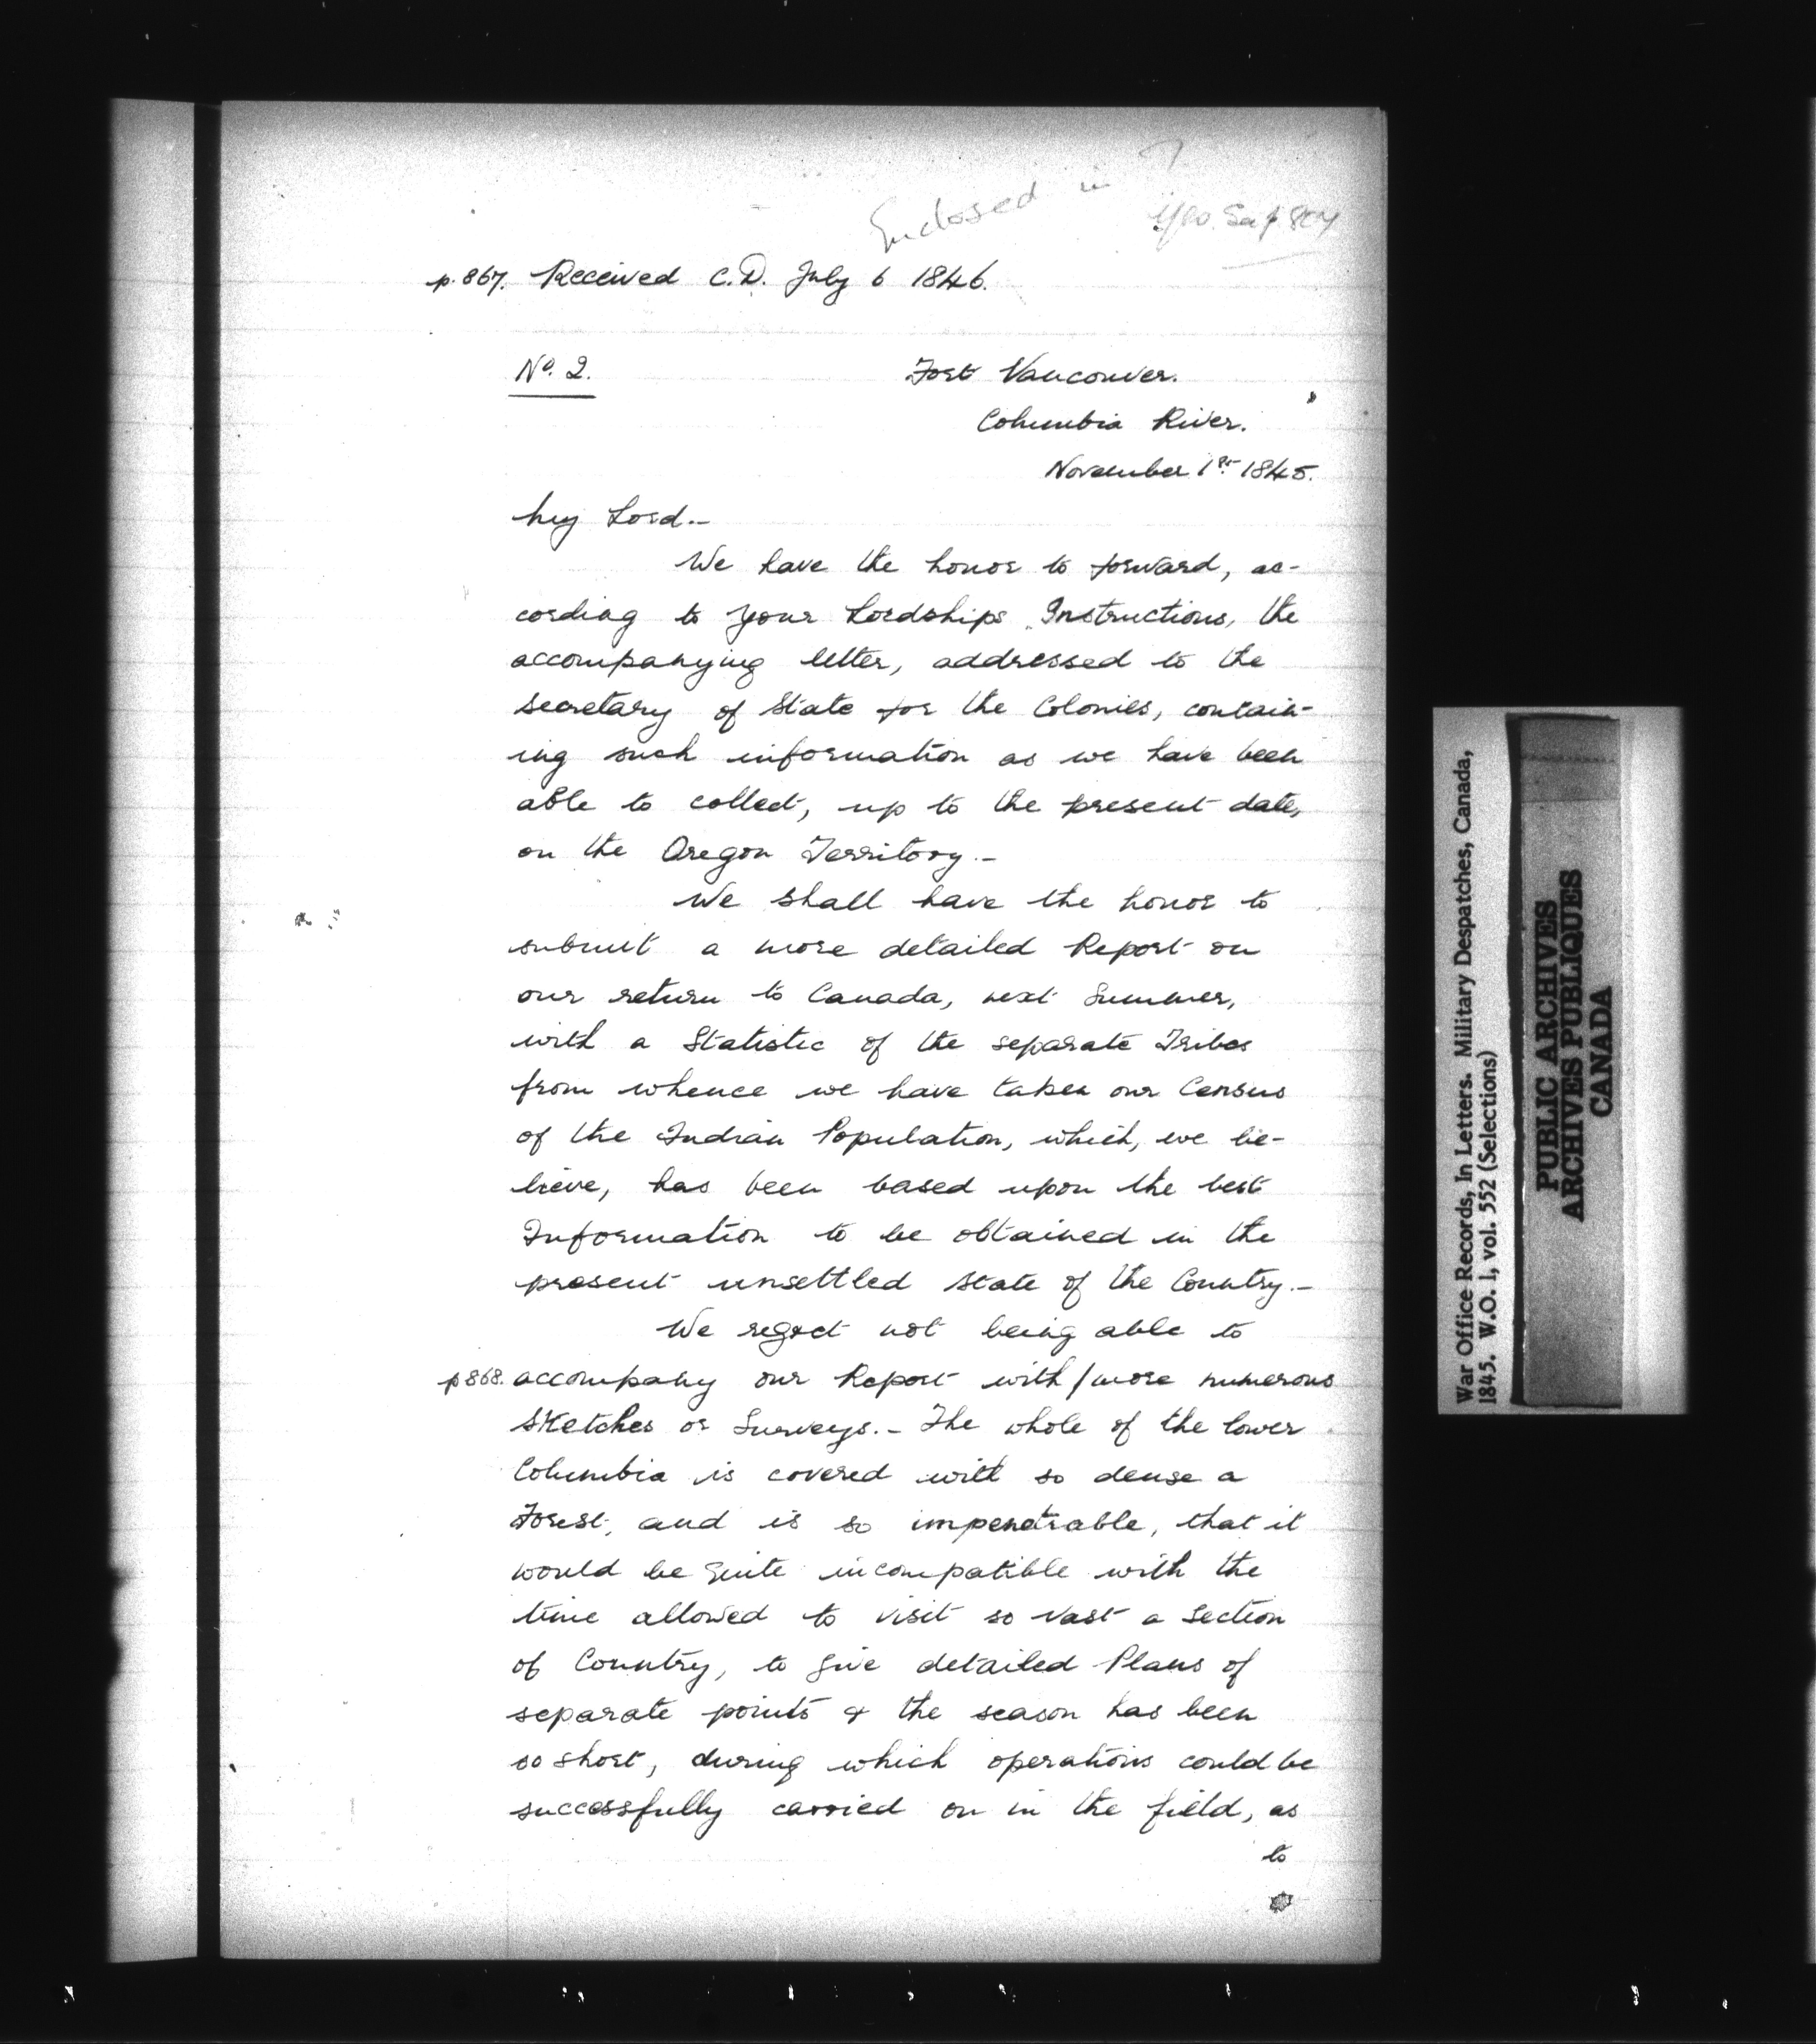 Enclosed in
p.867. Received C.D. July 6 1846.
No. 2.
Fort Vancouver.
Columbia River.
November 1st 1845.
My Lord.-
We have the honor to forward, ac-
cording to your Lordships Instructions, the
accompanying letter, addressed to the
Secretary of State for the Colonies, contain-
ing such information as we have been
able to collect, up to the present date,
on the Oregon Territory.-
We shall have the honor to
submit a more detailed Report on
our return to Canada, next Summer,
with a Statistic of the separate Tribes
from whence we have taken our Census
of the Indian Population, which, we be-
lieve, has been based upon the best
Information to be obtained in the
present unsettled state of the Country.-
We regret not being able to
p868. accompany our Report with/more numerous
Sketches or Surveys.- The whole of the lower
Columbia is covered with so dense a
Forest, and is so impenetrable, that it
would be quite incompatible with the
time allowed to visit so vast a section
of Country, to give detailed Plans of
separate points & the season has been
so short, during which operations could be
successfully carried on in the field, as
to
War Office Records, In Letters. Military Despatches, Canada,
1845. W.O. 1, vol. 552 (Selections)
PUBLIC ARCHIVES
ARCHIVES PUBLIQUES
CANADA